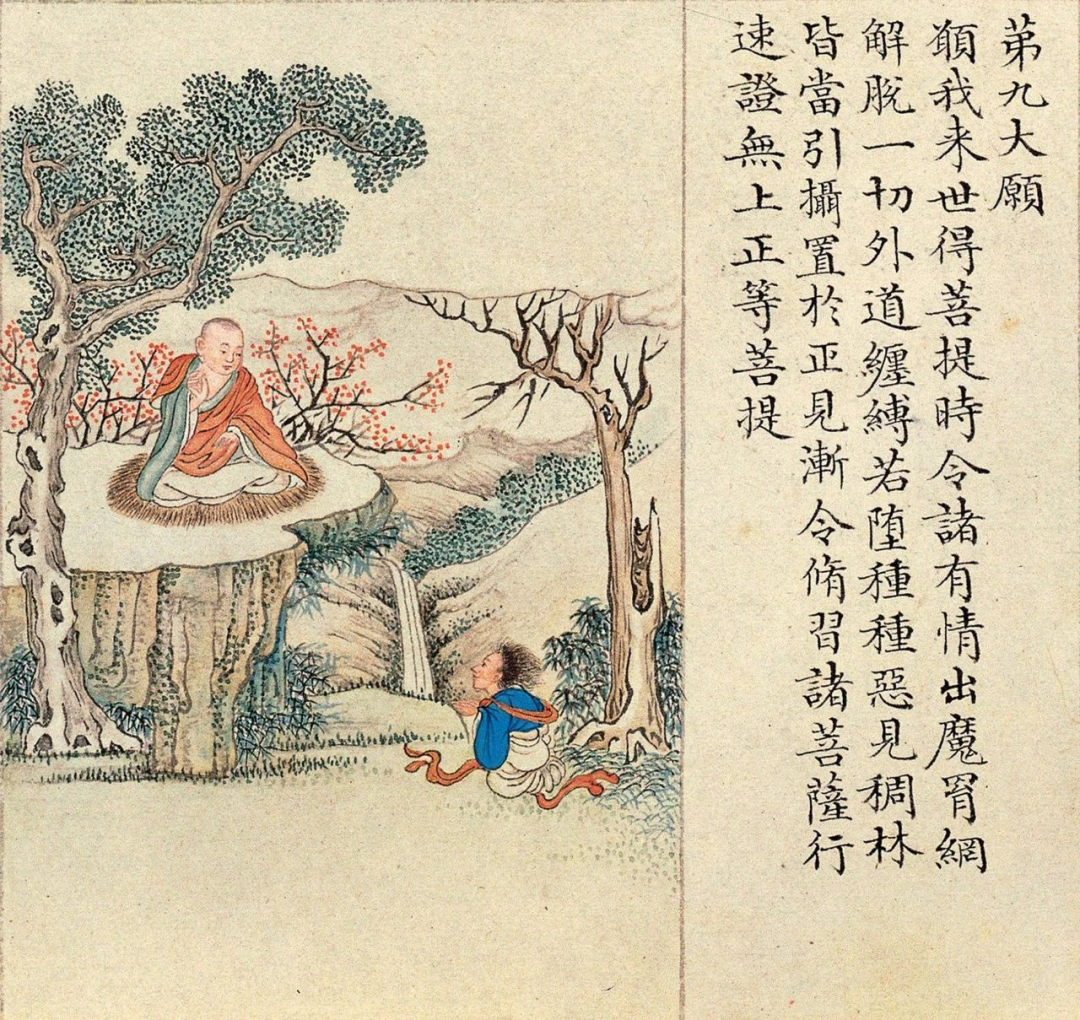 苐九大願
願我来世得菩提時令諸有情出魔罥網
解脫一切外道纏縛若堕種種惡見稠林
皆當引攝置於正見漸令脩習諸菩薩行
速證無上正等菩提